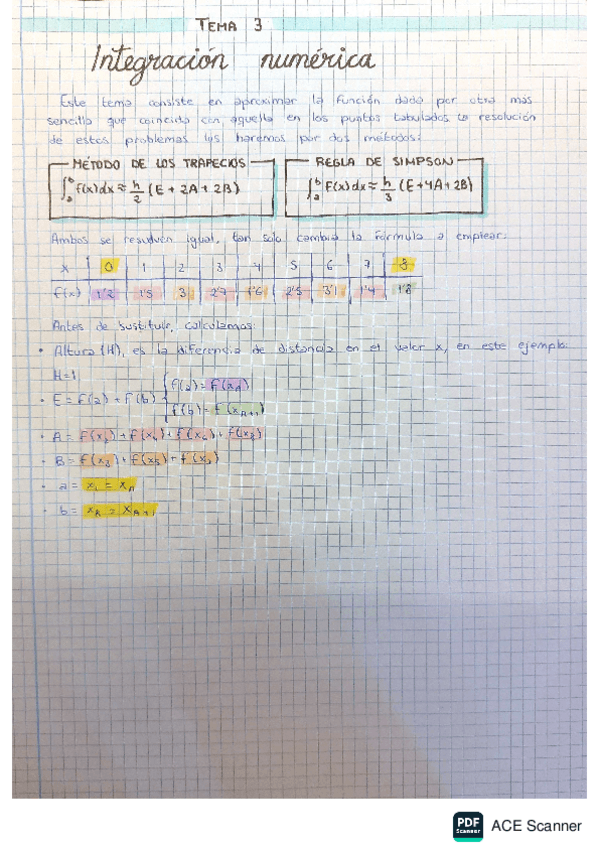 TEMA 3
Integración numérica
Este tema consiste en aproximar la función dada por otra más
sencilla que coincida con aquella en los puntos tabulados la resolución
de estos problemas los haremos por dos métodos:
MÉTODO DE LOS TRAPECIOS
∫ₐᵇ f(x)dx ≈ h/2 (E + 2A + 2B)
REGLA DE SIMPSON
∫ₐᵇ f(x)dx ≈ h/3 (E+4A+2B)
Ambos se resuelven igual, tan solo cambia la fórmula a emplear:
x 0 1 2 3 4 5 6 7 8
f(x) 1'2 1'5 3 2'7 1'6 2'5 3'1 1'4 1'8
Antes de sustituir, calculamos:
• Altura (H), es la diferencia de distancia en el valor x, en este ejemplo
H=1
• E = f(a) + f(b) { f(a) = f(x₁)
f(b) = f(xₙ₊₁)
• A = f(x₂) + f(x₄) + f(x₆) + f(x₈)
• B = f(x₃) + f(x₅) + f(x₇)
• a =
• b =
PDF
Scanner
ACE Scanner